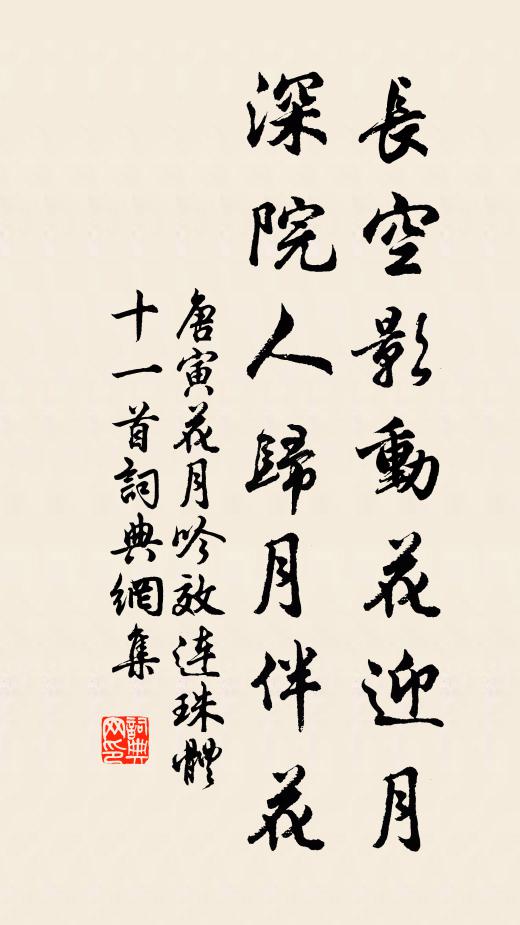 長空影動花迎月
深院人歸月伴花
唐寅花月吟效連珠體
十一首詞典網集
詞典網印